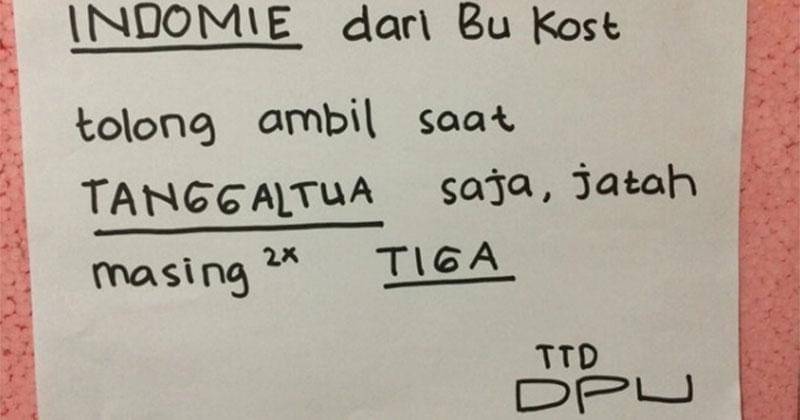 INDOMIE dari Bu Kost
tolong ambil saat
TANGGALTUA saja, jatah
masing 2x TIGA
TTD
DPU